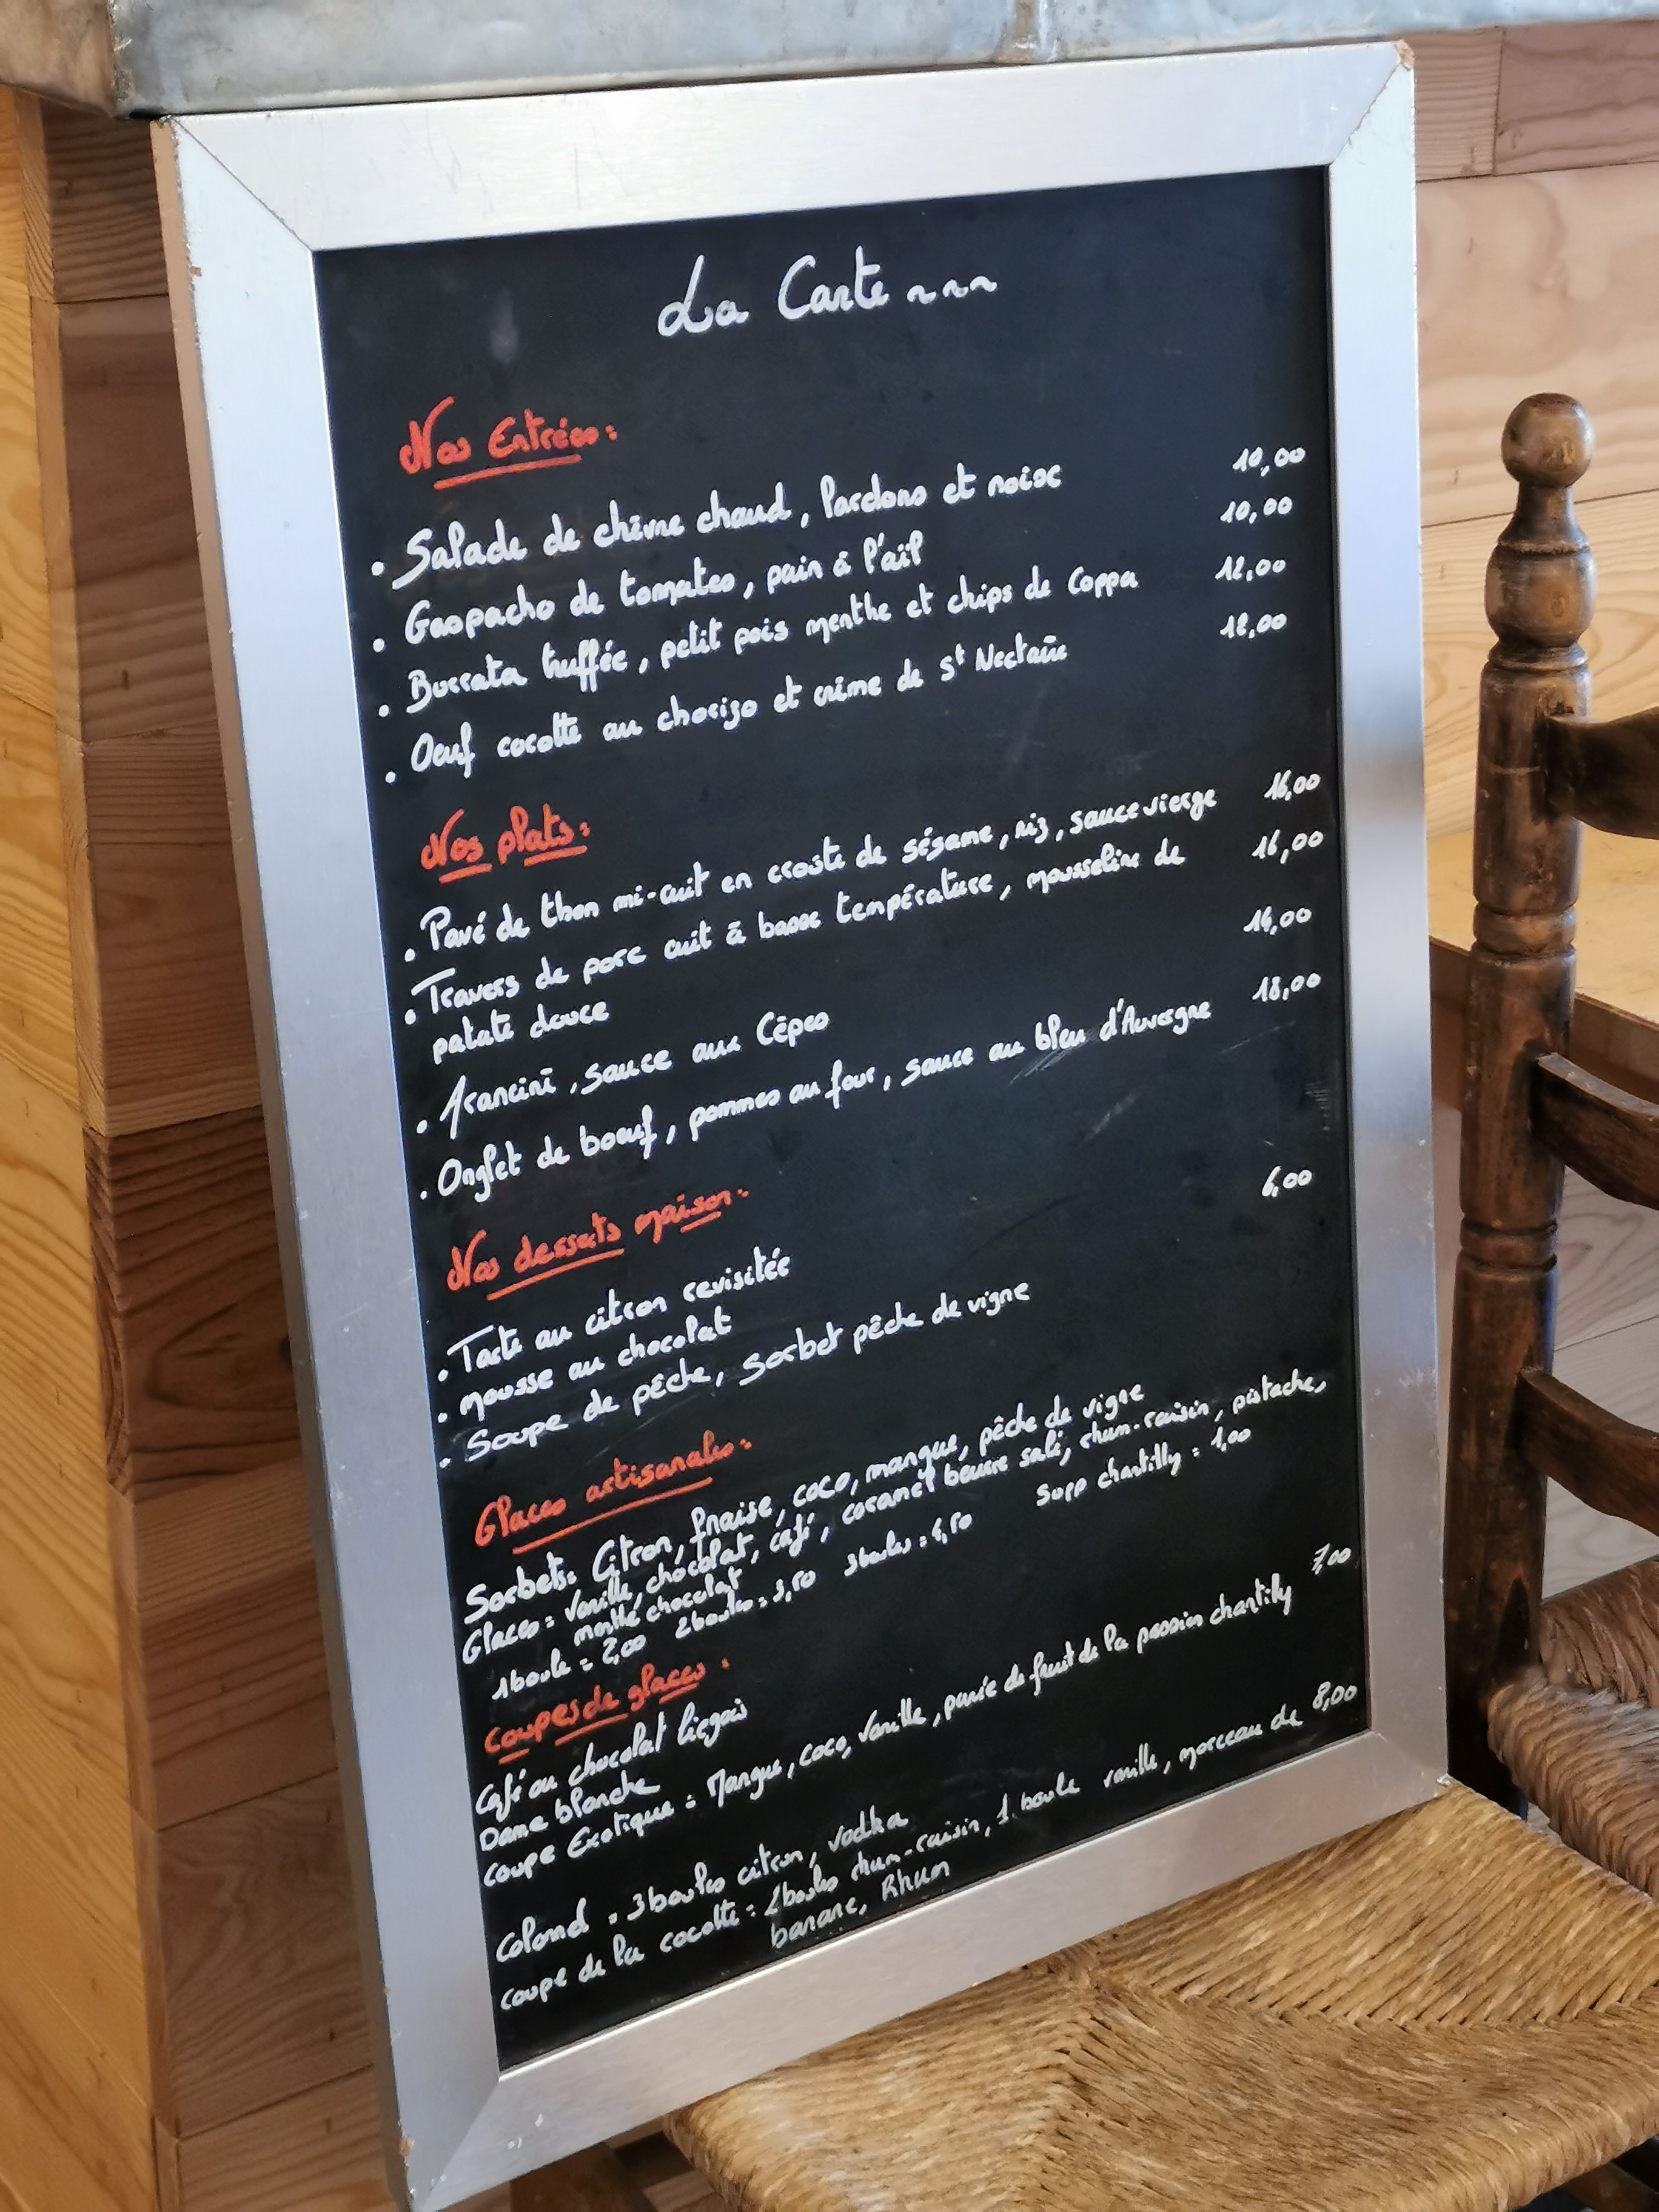 La Carte ~~~
Nos Entrées:
• Salade de chèvre chaud, lardons et noix 10,00
• Gaspacho de tomates, pain à l'ail 10,00
• Burrata truffée, petit pois menthe et chips de Coppa 12,00
• Oeuf cocotte au chorizo et crème de St Nectaire 12,00
Nos plats:
• Pavé de thon mi-cuit en croûte de sésame, riz, sauce vierge 16,00
• Travers de porc cuit à basse température, mousseline de 16,00
patate douce
• Arancini, sauce aux Cèpes 14,00
• Onglet de boeuf, pommes au four, sauce au bleu d'Auvergne 18,00
Nos desserts maison: 6,00
• Tarte au citron revisitée
• mousse au chocolat
• Soupe de pêche, sorbet pêche de vigne
Glaces artisanales:
Sorbets: Citron, fraise, coco, mangue, pêche de vigne
Glaces: Vanille, chocolat, café, caramel beurre salé, rhum-raisin, pistache,
menthe chocolat
1 boule = 2,00 2 boules = 3,50 3 boules = 4,50 Supp chantilly = 1,00
Coupes de glaces:
Café ou chocolat liégois 7,00
Dame blanche
Coupe Exotique: Mangue, coco, Vanille, purée de fruit de la passion chantilly
Colonel: 3 boules citron, vodka 8,00
coupe de la cocotte: 2 boules rhum-raisin, 1 boule vanille, morceau de
banane, Rhum